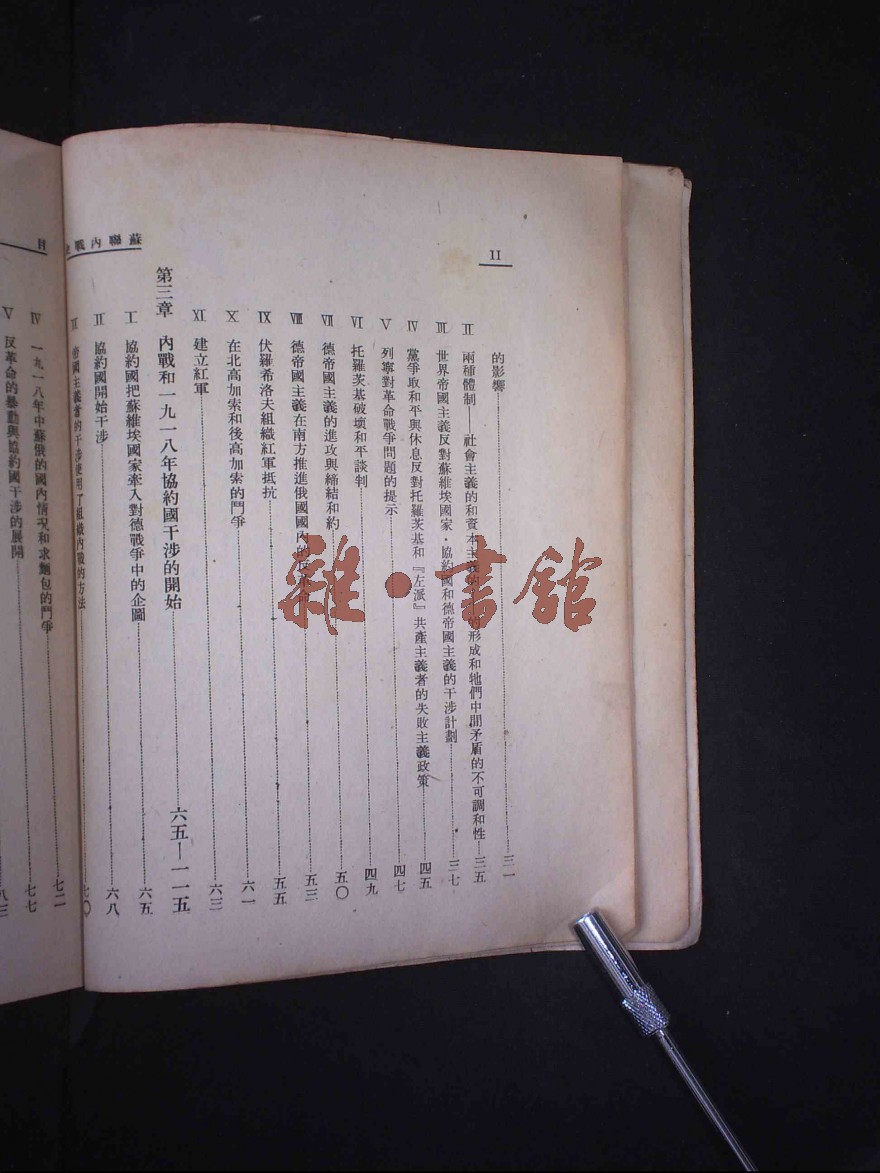 II
蘇聯內戰
的影響 三一
II 兩種體制——社會主義的和資本主義的 的形成和牠們中間矛盾的不可調和性 三五
III 世界帝國主義反對蘇維埃國家·協約國和德帝國主義的干涉計劃 三七
IV 黨爭取和平與休息反對托羅茨基和『左派』共產主義者的失敗主義政策 四五
V 列寧對革命戰爭問題的提示 四七
VI 托羅茨基破壞和平談判 四九
VII 德帝國主義的進攻與締結和約 五〇
VIII 德帝國主義在南方推進俄國國內的反革命 五三
IX 伏羅希洛夫組織紅軍抵抗 五五
X 在北高加索和後高加索的鬥爭 六一
XI 建立紅軍 六三
第三章 內戰和一九一八年協約國干涉的開始 六五—一一五
I 協約國把蘇維埃國家牽入對德戰爭中的企圖 六五
II 協約國開始干涉 六八
帝國主義者的干涉使用了組織內戰的方法 七〇
目
IV 一九一八年中蘇俄的國內情況和求麵包的鬥爭 七二
V 反革命的暴動與協約國干涉的展開 七七
八三
雜·書館